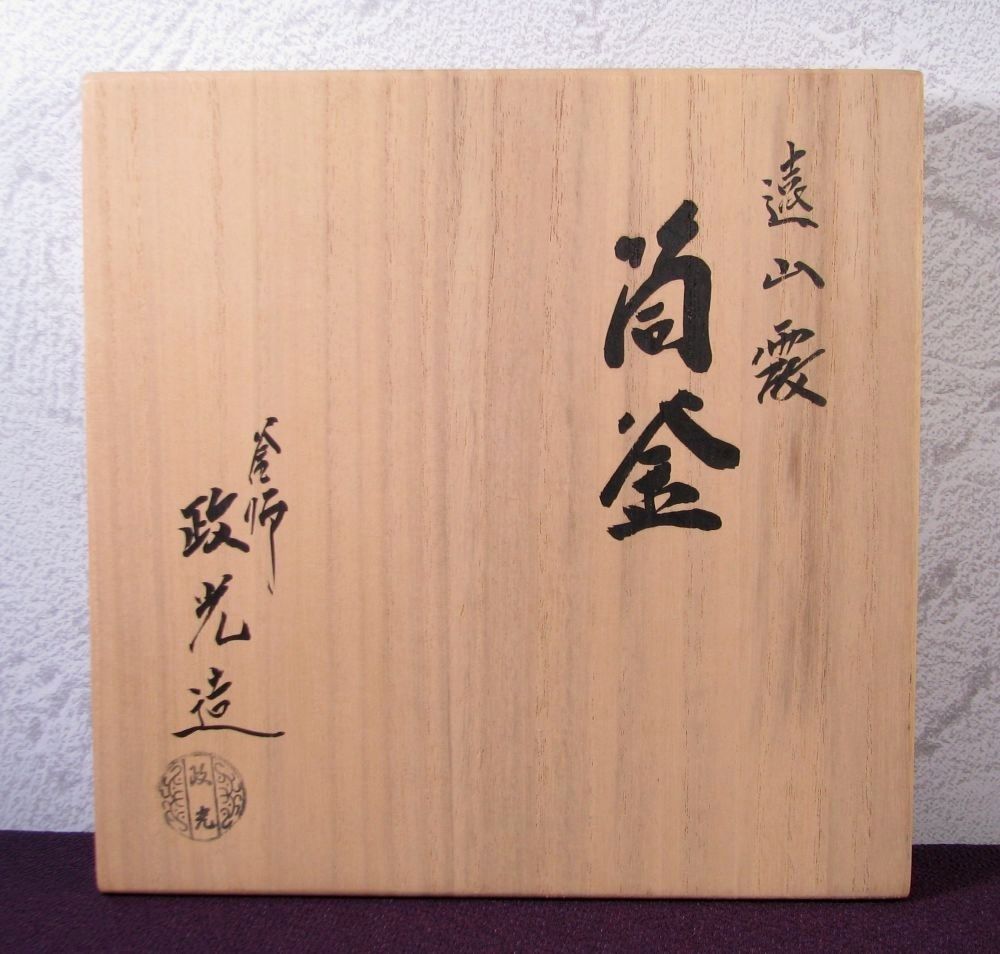 遠山霞
筒釜
釜師
政光造
政光